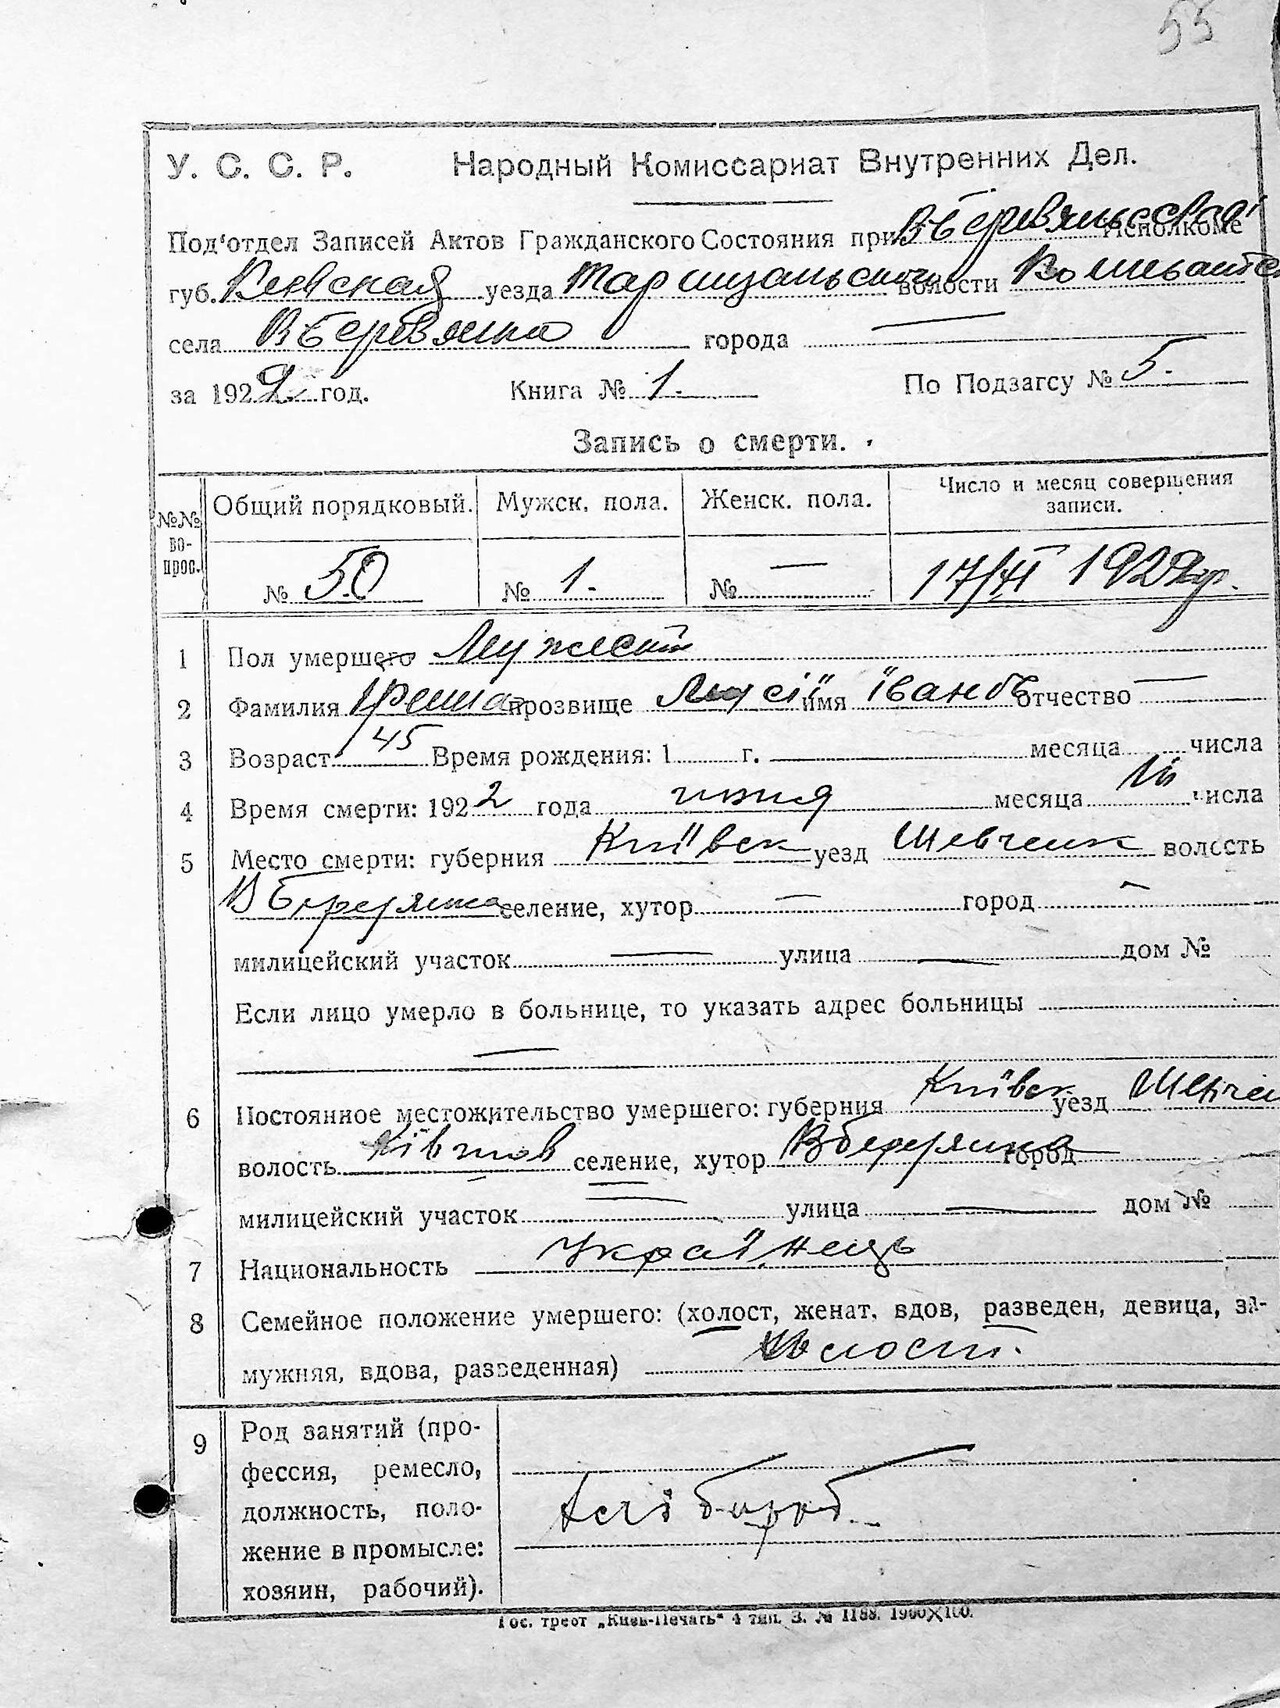 55
У. С. С. Р. Народный Комиссариат Внутренних Дел.
Под'отдел Записей Актов Гражданского Состояния при Исполкоме
губ. Киевская уезда волости
села города —
за 1922 год. Книга № 1. По Подзагсу № 5.
Запись о смерти.
№№ вопрос. Общий порядковый. Мужск. пола. Женск. пола. Число и месяц совершения записи.
№ 50 № 1. № — 17/VI 1922 гр.
1 Пол умершего Мужеск
2 Фамилия прозвище Мусій имя Іванов отчество —
3 Возраст 45 Время рождения: 1 г. месяца числа
4 Время смерти: 1922 года июня месяца 16 числа
5 Место смерти: губерния Київск уезд Шевченк волость
селение, хутор — город —
милицейский участок — улица — дом №
Если лицо умерло в больнице, то указать адрес больницы
—
6 Постоянное местожительство умершего: губерния Київск уезд Шевчен
волость селение, хутор город
милицейский участок — улица — дом №
7 Национальность Українець
8 Семейное положение умершего: (холост, женат, вдов, разведен, девица, за-
мужняя, вдова, разведенная) Холост.
9 Род занятий (про-
фессия, ремесло,
должность, поло-
жение в промысле:
хозяин, рабочий).
Гос. трест „Киев-Печать" 4 тип. З. № 1188. 1900×100.